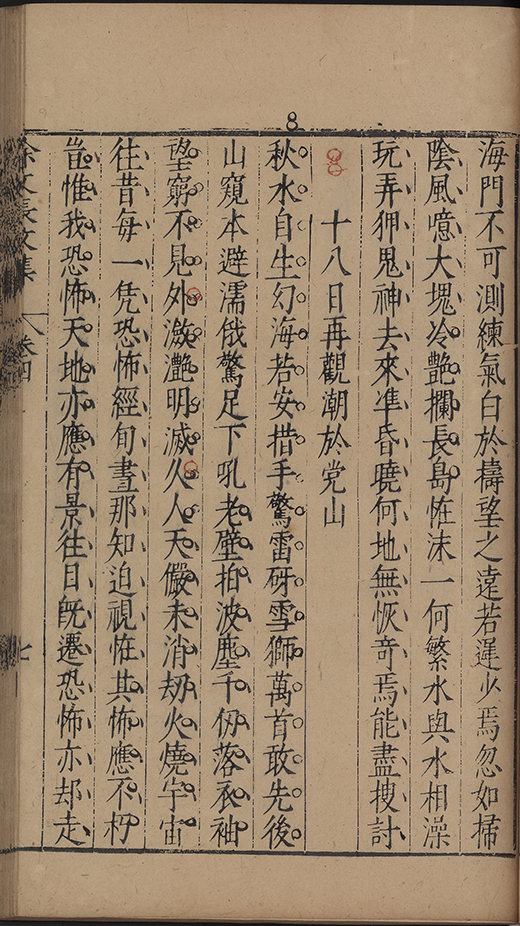 8
海門不可測練氣白於擣望之遠若遲少焉忽如掃
陰風噫大塊冷艷攔長島恠沫一何繁水與水相澡
玩弄狎鬼神去來準昏曉何地無恢奇焉能盡搜討
十八日再觀潮於党山
秋水自生幻海若安措手驚雷砑雪獅萬首敢先後
山窺本避濡俄驚足下吼老壁拍波塵千仞落衣袖
望窮不見外瀲灧明滅久人天儼未消刼火燒宇宙
往昔每一凭恐怖經旬晝那知迫視恠其怖應不朽
昔惟我恐怖天地亦應有景往日旣遷恐怖亦却走
徐文長文集
卷四
七